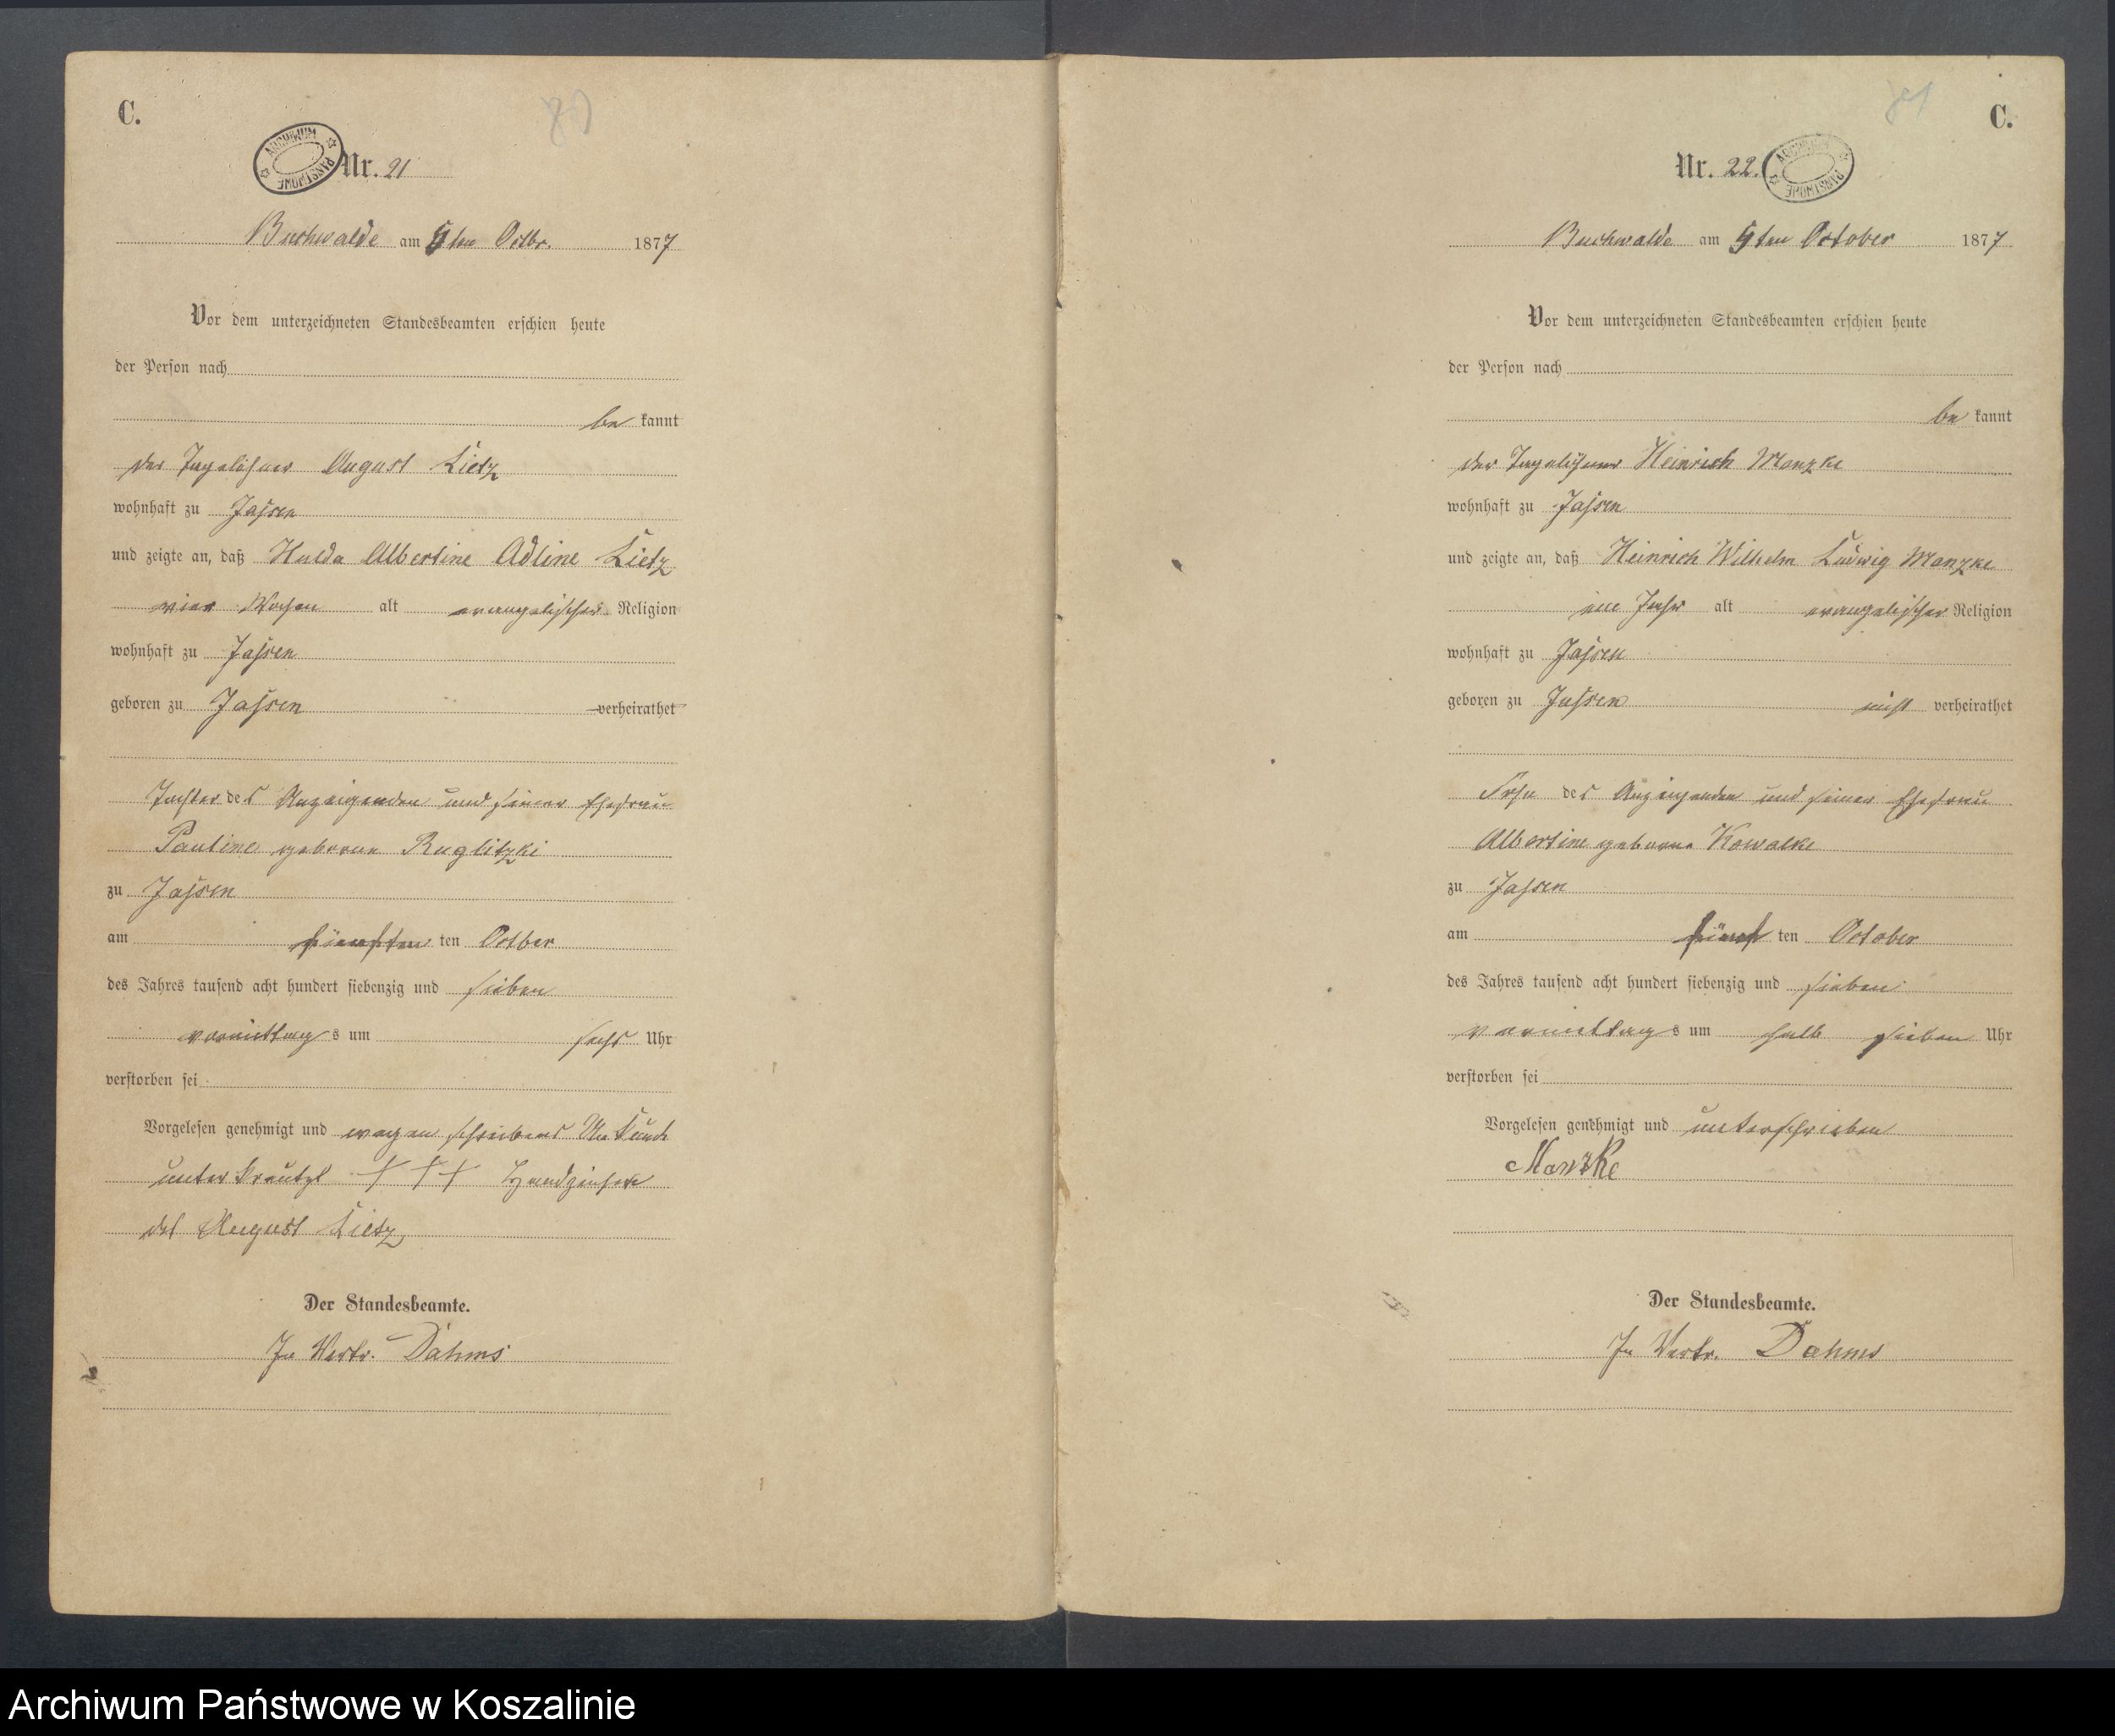 C.
ARCHIWUM PAŃSTWOWE
Nr. 21
Buchwalde am 5ten Octbr. 1877
Vor dem unterzeichneten Standesbeamten erschien heute
der Person nach
be kannt
der Tagelöhner August Lietz
wohnhaft zu Jassen
und zeigte an, daß Hulda Albertine Adline Lietz
vier Wochen alt evangelischer Religion
wohnhaft zu Jassen
geboren zu Jassen verheirathet
Tochter des Anzeigenden und seiner Ehefrau
Pauline geborene Ruglitzki
zu Jassen
am fünften ten Octber
des Jahres tausend acht hundert siebenzig und sieben
vormittag s um sechs Uhr
verstorben sei
Vorgelesen genehmigt und wegen schreibens Unkunde
unterkreutzt +++ Handzeichen
des August Lietz
Der Standesbeamte.
In Vertr. Dahms
C.
Nr. 22.
ARCHIWUM PAŃSTWOWE
Buchwalde am 5ten October 1877
Vor dem unterzeichneten Standesbeamten erschien heute
der Person nach
be kannt
der Tagelöhner Heinrich Manzke
wohnhaft zu Jassen
und zeigte an, daß Heinrich Wilhelm Ludwig Manzke
ein Jahr alt evangelischer Religion
wohnhaft zu Jassen
geboren zu Jassen nicht verheirathet
Sohn des Anzeigenden und seiner Ehefrau
Albertine geborne Kowalke
zu Jassen
am fünf ten October
des Jahres tausend acht hundert siebenzig und sieben
vormittag s um halb sieben Uhr
verstorben sei
Vorgelesen genehmigt und unterschrieben
Manzke
Der Standesbeamte.
In Vertr. Dahms
Archiwum Państwowe w Koszalinie